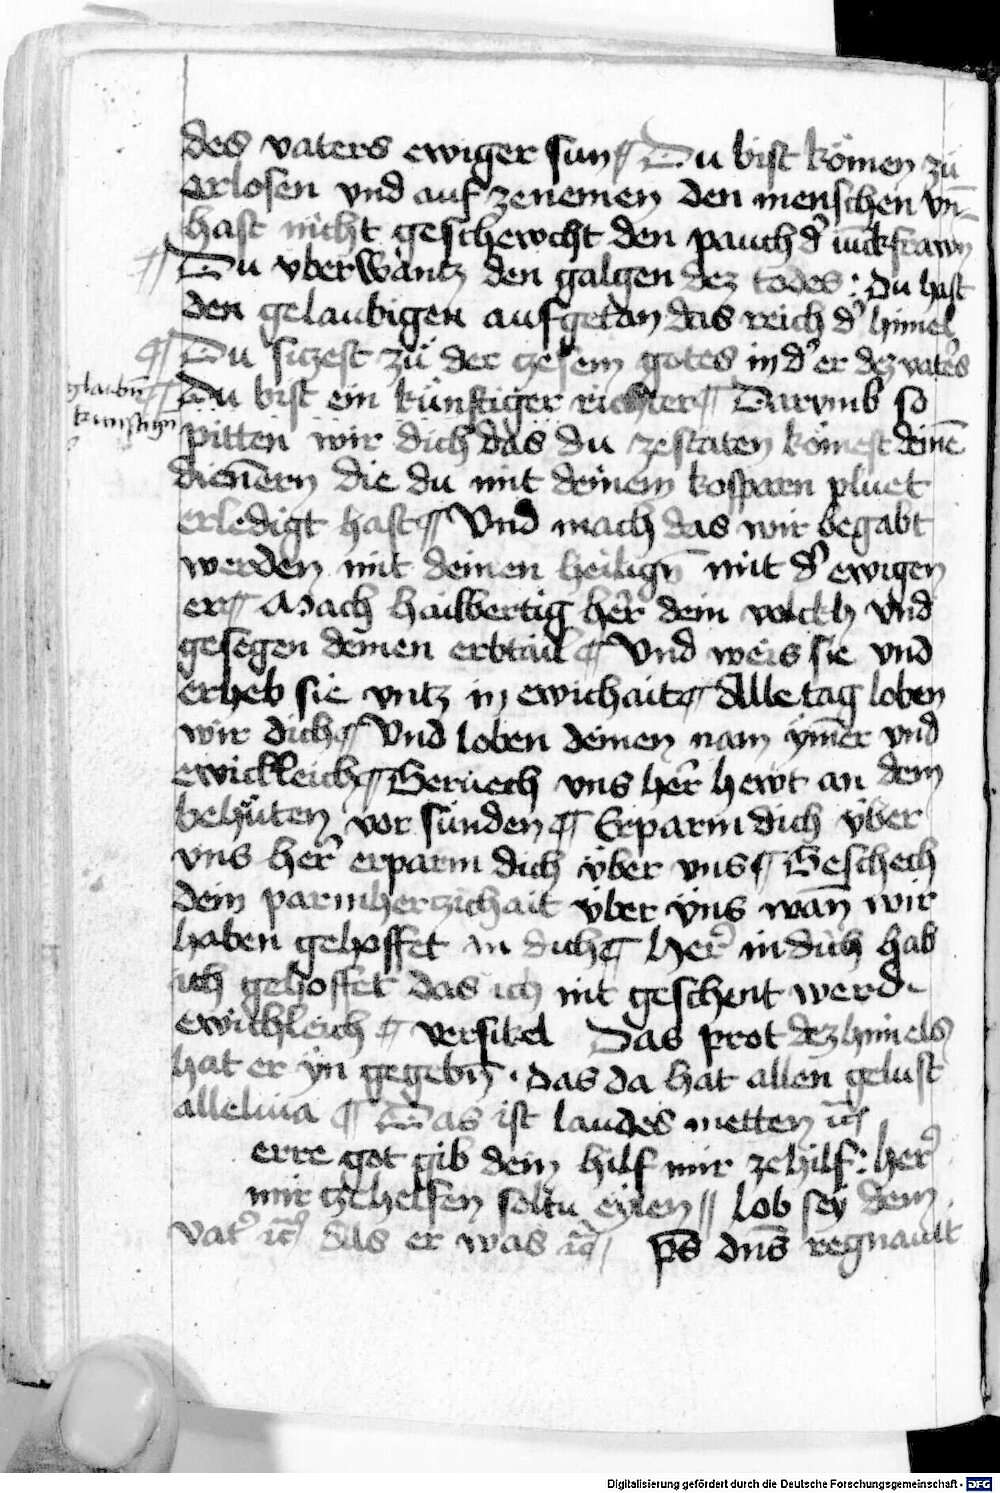 des vaters ewiger sun ¶ Du bist kömen zü
erlosen vnd auf zenemen den menschen vn̄
hast nicht geschewcht den pauch d' iūckfrawn̄
¶ Du vberwantz den galgen dez todes : du hast
den gelaubigen aufgetan das reich d' himel
¶ Du siczest zü der czesem gotes in d' er dez vaters
glaubn̄
¶ Du bist ein künftiger richter ¶ Darvmb so
kunftign̄
pitten wir dich das du zestaten kömest deinē
dienern die du mit deinem kosparn pluet
erledigt hast ¶ Vnd mach das wir begabt
werden mit deinen heilign̄ mit d' ewigen
er ¶ Mach hailbertig her dein volckh vnd
gesegen deinen erbtail ¶ Vnd weis sie vnd
erheb sie vntz in ewichait ¶ Alle tag loben
wir dich ¶ Vnd loben deinen nam ym̄er vnd
ewickleich ¶ Geruech vns her hewt an dem
behüten vor sünden ¶ Erparm dich über
vns her erparm dich über vns ¶ Geschech
dein parmherczichait über vns wan̄ wir
haben gehoffet in dich ¶ Her in dich hab
ich gehoffet das ich nit geschent werd
ewichleich ¶ versikel Das prot dez himels
hat er yn gegebn̄ · das da hat allen gelust
alleluia ¶ Das ist laudes metten
erre got gib dein hilf mir zehilf : her
mir czehelfen soltu eylen // lob sey dem
vat' das er was ps dn̄s regnauit
Digitalisierung gefördert durch die Deutsche Forschungsgemeinschaft - DFG